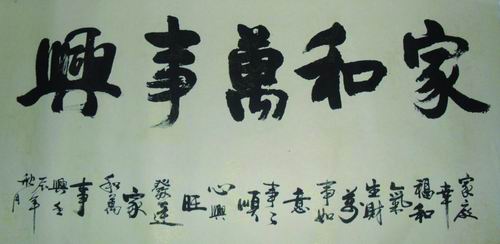 家和萬事興
家庭
幸
福和
氣
生財
萬
事如
意
事々
順
心興
旺
發達
家
和萬
事
興壬
辰年
秋月